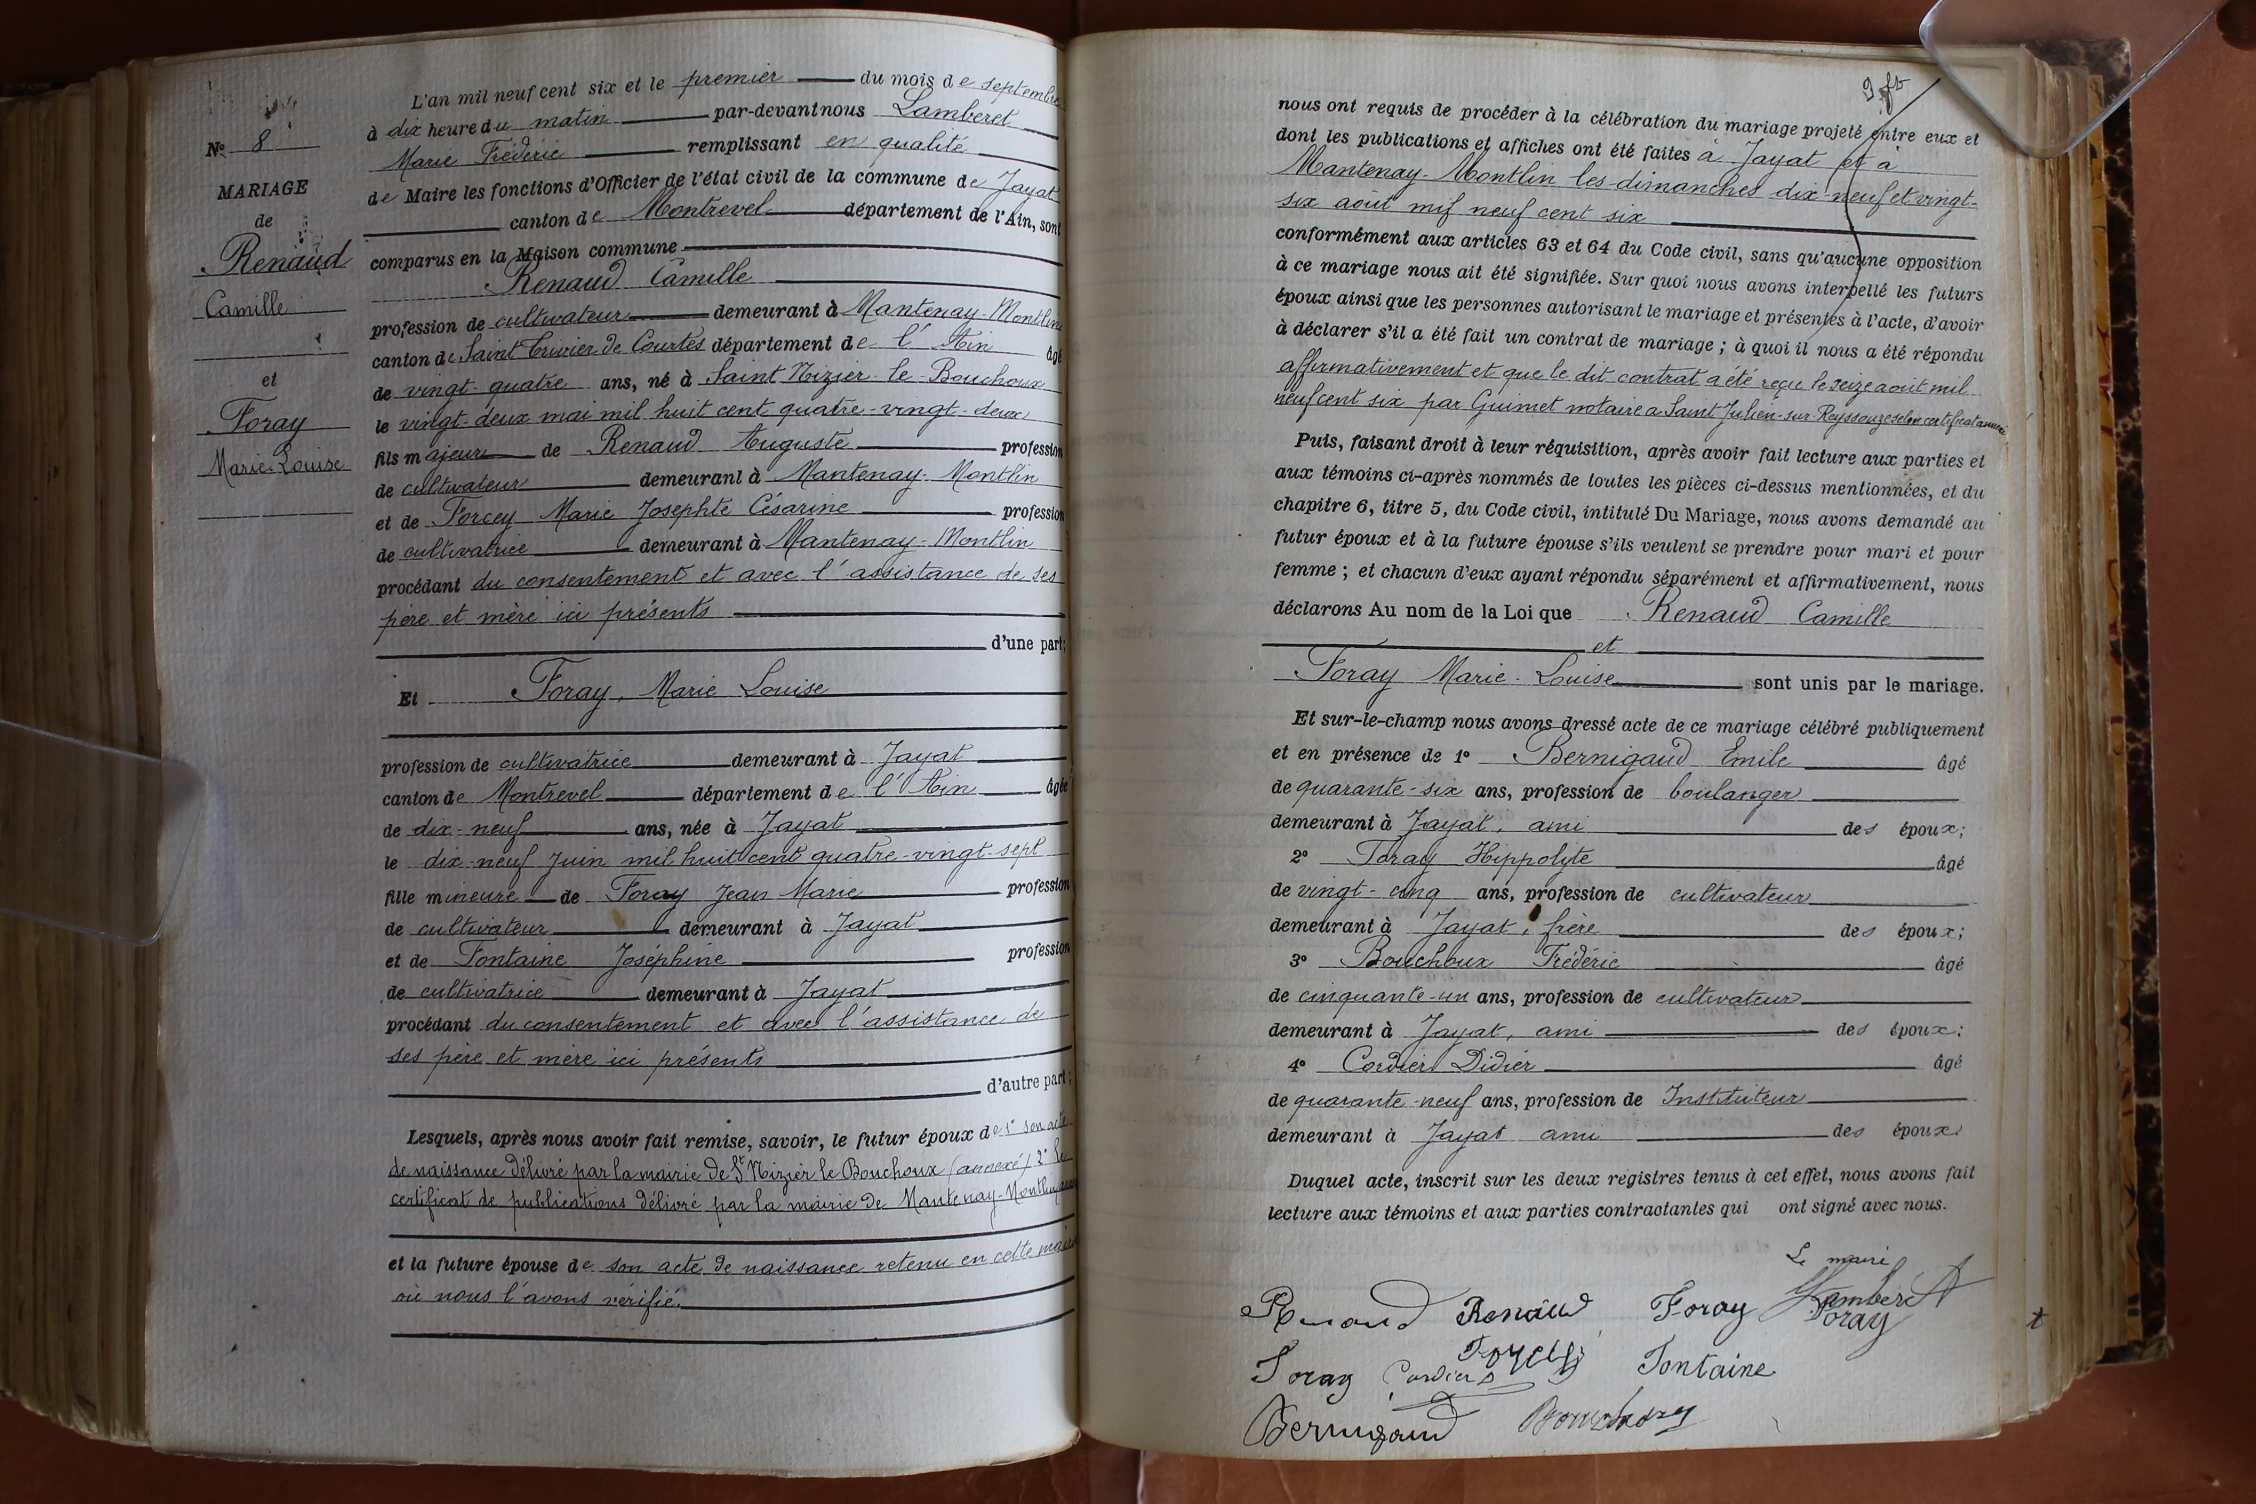 N° 8
MARIAGE
de
Renaud
Camille
et
Foray
Marie-Louise
L'an mil neuf cent six et le premier du mois de septembre
à dix heure du matin par-devant nous Lamberet
Marie Fréderic remplissant en qualité
de Maire les fonctions d'Officier de l'état civil de la commune de Jayat
canton de Montrevel département de l'Ain, sont
comparus en la Maison commune
Renaud Camille
profession de cultivateur demeurant à Mantenay-Montlin
canton de Saint Trivier de Courtes département de l'Ain âgé
de vingt-quatre ans, né à Saint Nizier le Bouchoux
le vingt-deux mai mil huit cent quatre-vingt-deux
fils majeur de Renaud Auguste profession
de cultivateur demeurant à Mantenay-Montlin
et de Forcey Marie Josephte Césarine profession
de cultivatrice demeurant à Mantenay-Montlin
procédant du consentement et avec l'assistance de ses
père et mère ici présents
d'une part;
Et Foray, Marie Louise
profession de cultivatrice demeurant à Jayat
canton de Montrevel département de l'Ain âgée
de dix-neuf ans, née à Jayat
le dix-neuf Juin mil huit cent quatre-vingt-sept
fille mineure de Foray Jean Marie profession
de cultivateur demeurant à Jayat
et de Fontaine Joséphine profession
de cultivatrice demeurant à Jayat
procédant du consentement et avec l'assistance de
ses père et mère ici présents
d'autre part;
Lesquels, après nous avoir fait remise, savoir, le futur époux de 1° son acte
de naissance délivré par la mairie de St Nizier le Bouchoux (annexé) 2° le
certificat de publications délivré par la mairie de Mantenay-Montlin
et la future épouse de son acte de naissance retenu en cette mairie
où nous l'avons vérifié.
nous ont requis de procéder à la célébration du mariage projeté entre eux et
dont les publications et affiches ont été faites à Jayat et à
Mantenay-Montlin les dimanches dix-neuf et vingt-
six août mil neuf cent six
conformément aux articles 63 et 64 du Code civil, sans qu'aucune opposition
à ce mariage nous ait été signifiée. Sur quoi nous avons interpellé les futurs
époux ainsi que les personnes autorisant le mariage et présentes à l'acte, d'avoir
à déclarer s'il a été fait un contrat de mariage; à quoi il nous a été répondu
affirmativement et que le dit contrat a été reçu le seize août mil
neuf cent six par Guimet notaire a Saint Julien-sur-Reyssouze selon certificat annexé
Puis, faisant droit à leur réquisition, après avoir fait lecture aux parties et
aux témoins ci-après nommés de toutes les pièces ci-dessus mentionnées, et du
chapitre 6, titre 5, du Code civil, intitulé Du Mariage, nous avons demandé au
futur époux et à la future épouse s'ils veulent se prendre pour mari et pour
femme; et chacun d'eux ayant répondu séparément et affirmativement, nous
déclarons Au nom de la Loi que Renaud Camille
et
Foray Marie-Louise sont unis par le mariage.
Et sur-le-champ nous avons dressé acte de ce mariage célébré publiquement
et en présence de 1° Bernigaud Emile âgé
de quarante-six ans, profession de boulanger
demeurant à Jayat, ami des époux;
2° Foray Hippolyte âgé
de vingt-cinq ans, profession de cultivateur
demeurant à Jayat, frère des époux;
3° Bouchoux Frédéric âgé
de cinquante-un ans, profession de cultivateur
demeurant à Jayat, ami des époux;
4° Cordier Didier âgé
de quarante-neuf ans, profession de Instituteur
demeurant à Jayat ami des époux
Duquel acte, inscrit sur les deux registres tenus à cet effet, nous avons fait
lecture aux témoins et aux parties contractantes qui ont signé avec nous.
Le maire
Lamberet
Renaud Renaud Foray Foray
Foray Cordier Forcey Fontaine
Bernigaud